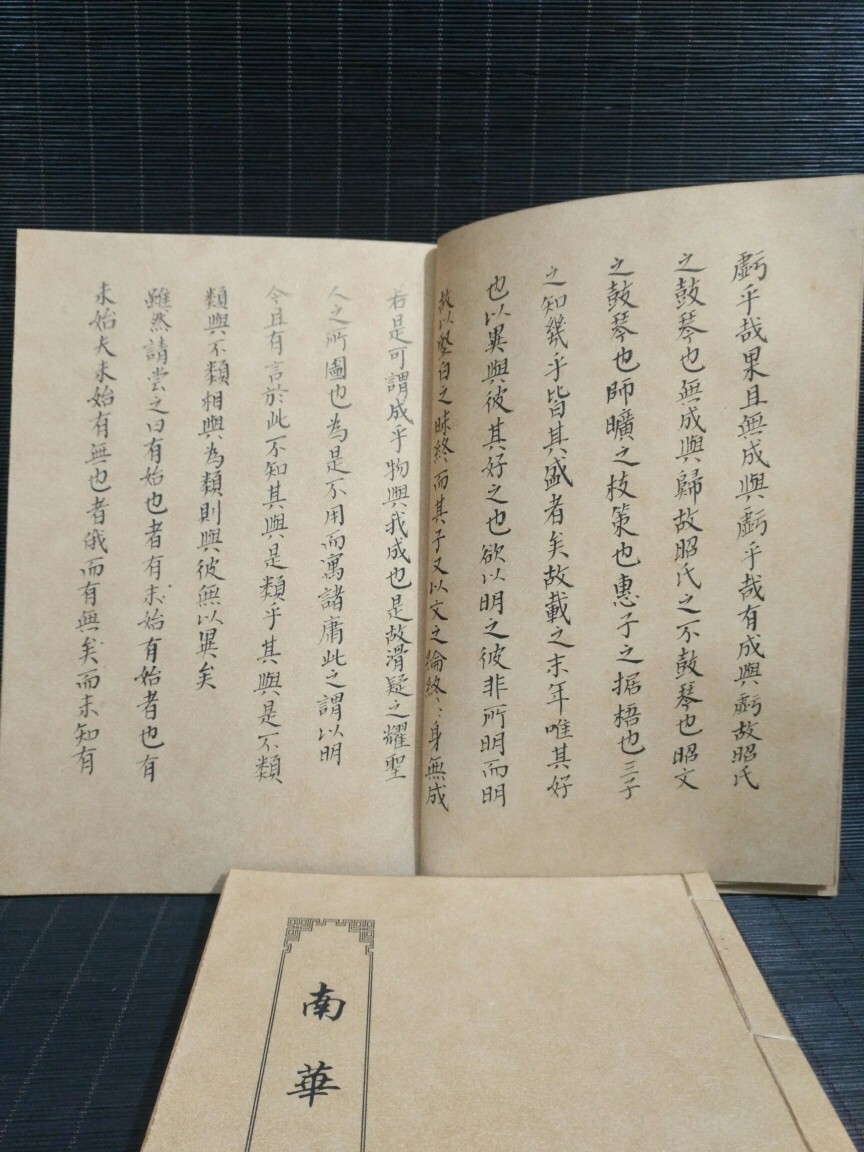 虧乎哉果且無成與虧乎哉有成與虧故昭氏
之鼓琴也無成與歸故昭氏之不鼓琴也昭文
之鼓琴也師曠之枝策也惠子之据梧也三子
之知幾乎皆其盛者矣故載之末年唯其好
也以異與彼其好之也欲以明之彼非所明而明
故以堅白之昧終而其子又以文之綸終:身無成
若是可謂成乎物與我成也是故滑疑之耀聖
人之所圖也為是不用而寓諸庸此之謂以明
今且有言於此不知其與是類乎其與是不類
類與不類相與為類則與彼無以異矣
雖然請嘗之曰有始也者有未始有始者也有
未始夫未始有無也者俄而有無矣而未知有
南華